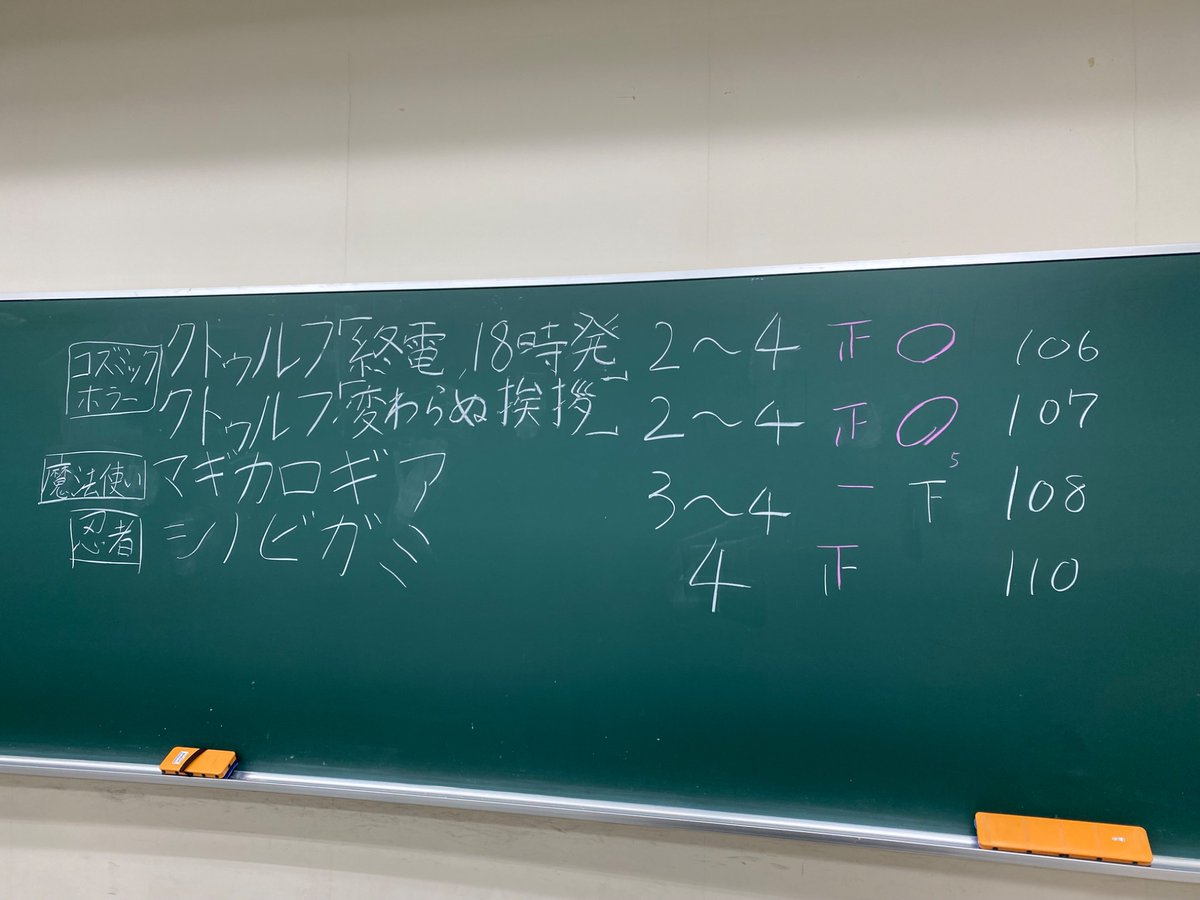 コズミックホラー クトゥルフ「終電、18時発」 2～4 正 ○ 106
クトゥルフ「変わらぬ挨拶」 2～4 正 ○ 107
魔法使い マギカロギア 3～4 一 5 下 108
忍者 シノビガミ 4 正 110